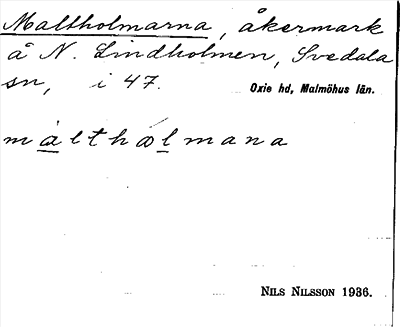 Maltholmarna, åkermark
å N. Lindholmen, Svedala
sn, i 47.
Oxie hd, Malmöhus län.
màlthólmana
NILS NILSSON 1936.